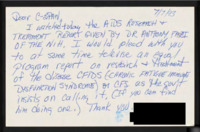 7/7/93
Dear C-SPAN,
I watched today the AIDS RESEARCH &
TREATMENT REPORT GIVEN BY DR ANTHONY FAUCI
OF THE N.I.H. I would plead with you
to at some time televise an equal
program report on research & treatment
of the disease CFIDS (CHRONIC FATIGUE IMMUNE
DYSFUNCTION SYNDROME) or CFS as the gov't
insists on calling it. (If you can find
him doing one.) Thank you